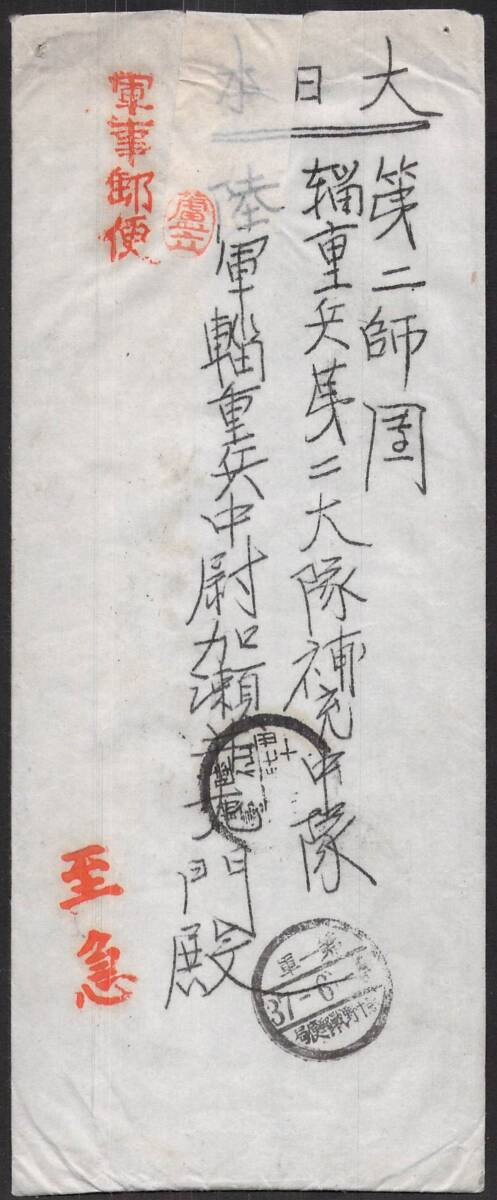 大日本
第二師團
輜重兵第二大隊補充中隊
陸軍輜重兵中尉加瀬 門殿
軍事郵便
至急
第一軍
37-6